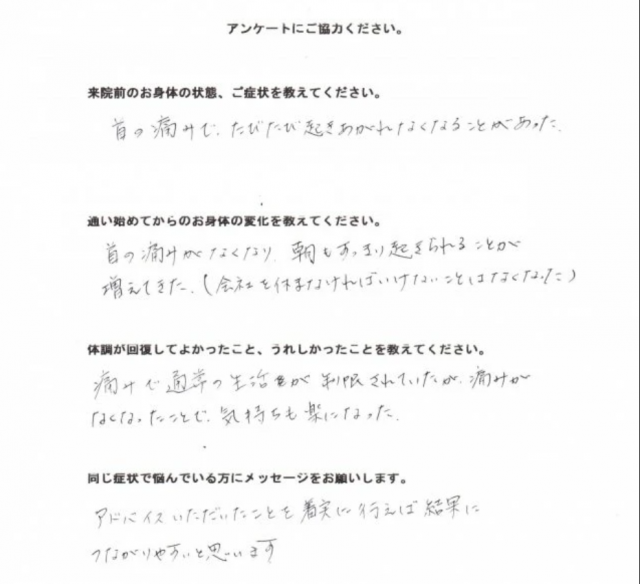 アンケートにご協力ください。
来院前のお身体の状態、ご症状を教えてください。
首の痛みで、たびたび起きあがれなくなることがあった。
通い始めてからのお身体の変化を教えてください。
首の痛みがなくなり、朝もすっきり起きられることが
増えてきた。(会社を休まなければいけないことはなくなった)
体調が回復してよかったこと、うれしかったことを教えてください。
痛みで通常の生活が制限されていたが、痛みが
なくなったことで、気持ちも楽になった。
同じ症状で悩んでいる方にメッセージをお願いします。
アドバイスいただいたことを着実に行えば結果に
つながりやすいと思います